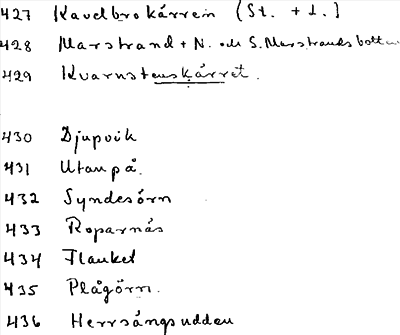 427 Kavelbrokärren (St. + L.)
428 Marstrand + N. och S. Marstrandsbotten
429 Kvarnstenskärret.
430 Djupvik
431 Utanpå.
432 Syndesörn
433 Roparnäs
434 Flauket
435 Plågörn.
436 Herrsängsudden